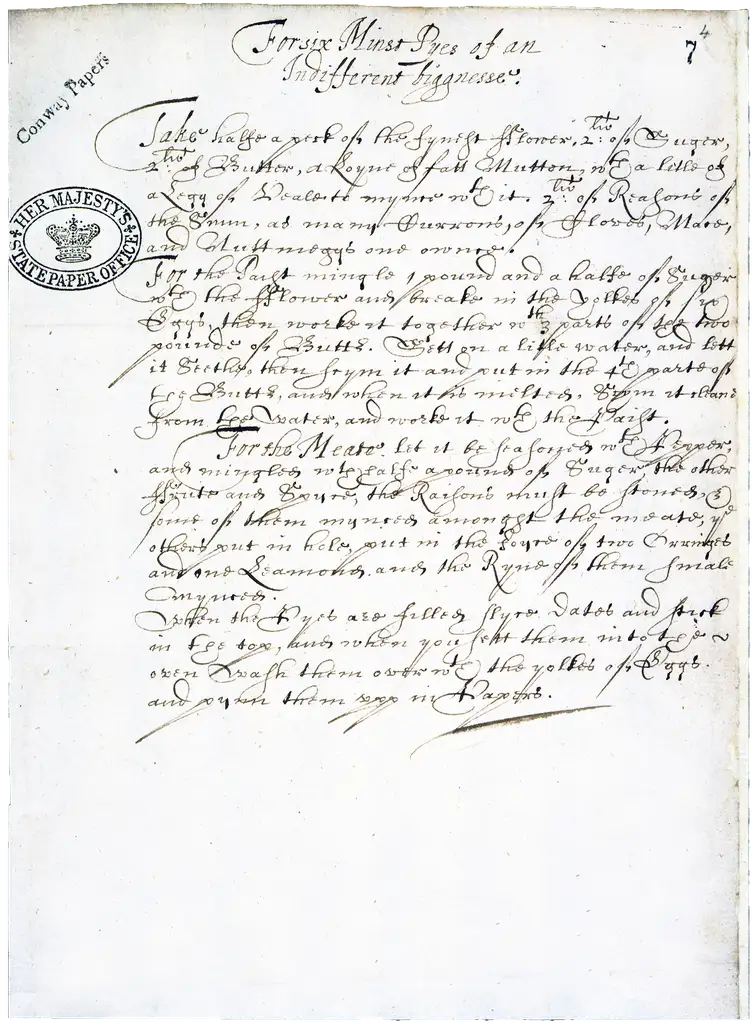 4
7
For six Minst Pyes of an
Indifferent biggnesse.
Conway Papers
HER MAJESTY'S
STATE PAPER OFFICE
Take halfe a peck of the fynest fflower, 2:li of Suger,
2:li of Butter, a Loyne of fatt Mutton, wth a litle of
a Legg of Veale to mynce wth it. 2:li of Reasons of
the Sunn, as many Currons, of Cloves, Mace,
and Nuttmeggs one ownce.
For the Paist mingle 1 pound and a halfe of Suger
wth the fflower and breake in the yolkes of six
Eggs, then worke it together wth 3 parts of the two
pounds of Butter. Sett on a litle water, and lett
it Seethe, then scym it and put in the 4th parte of
the Butter, and when it is melted, Scym it cleane
from the Water, and worke it wth the Paist.
For the Meate let it be seasoned wth Pepper,
and mingled wth halfe a pound of Suger, the other
ffrute and Spyce, the Raisons must be stoned, &
some of them mynced amongst the meate, ye
others put in hole, put in the Joyce of two Orringes
and one Leamond, and the Ryne of them smale
mynced.
When the Pyes are filled slyce Dates and stick
in the top, and when you sett them into the
oven Wash them over wth the yolkes of Eggs.
and pynn them upp in Papers.